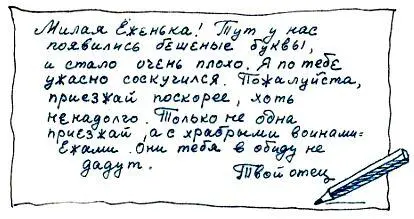 Милая Ёженька! Тут у нас
появились бешеные буквы,
и стало очень плохо. А по тебе
ужасно соскучился. Пожалуйста,
приезжай поскорее, хоть
ненадолго. Только не одна
приезжай, а с храбрыми воинами-
Ежами. Они тебя в обиду не
дадут.
Твой отец